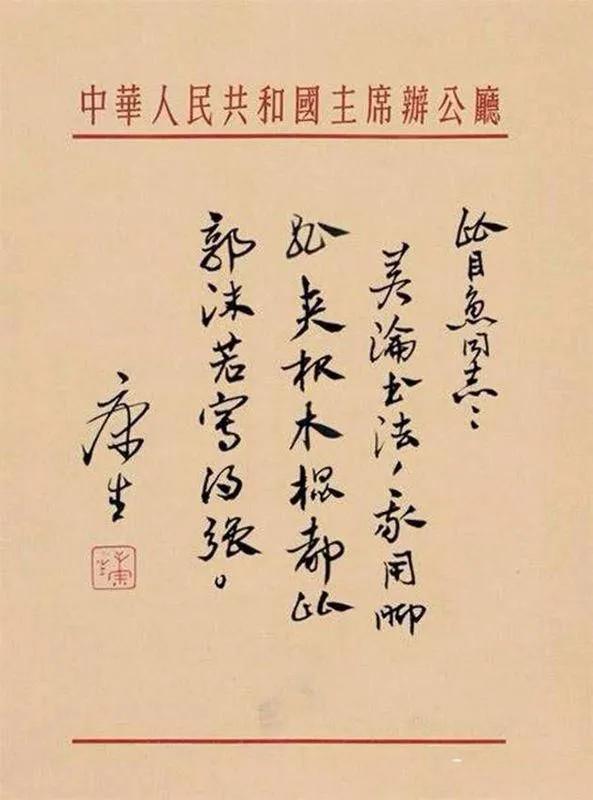 中華人民共和國主席辦公廳
比目魚同志：
若論书法，我用脚
趾夾根木棍都比
郭沫若寫得强。
康生